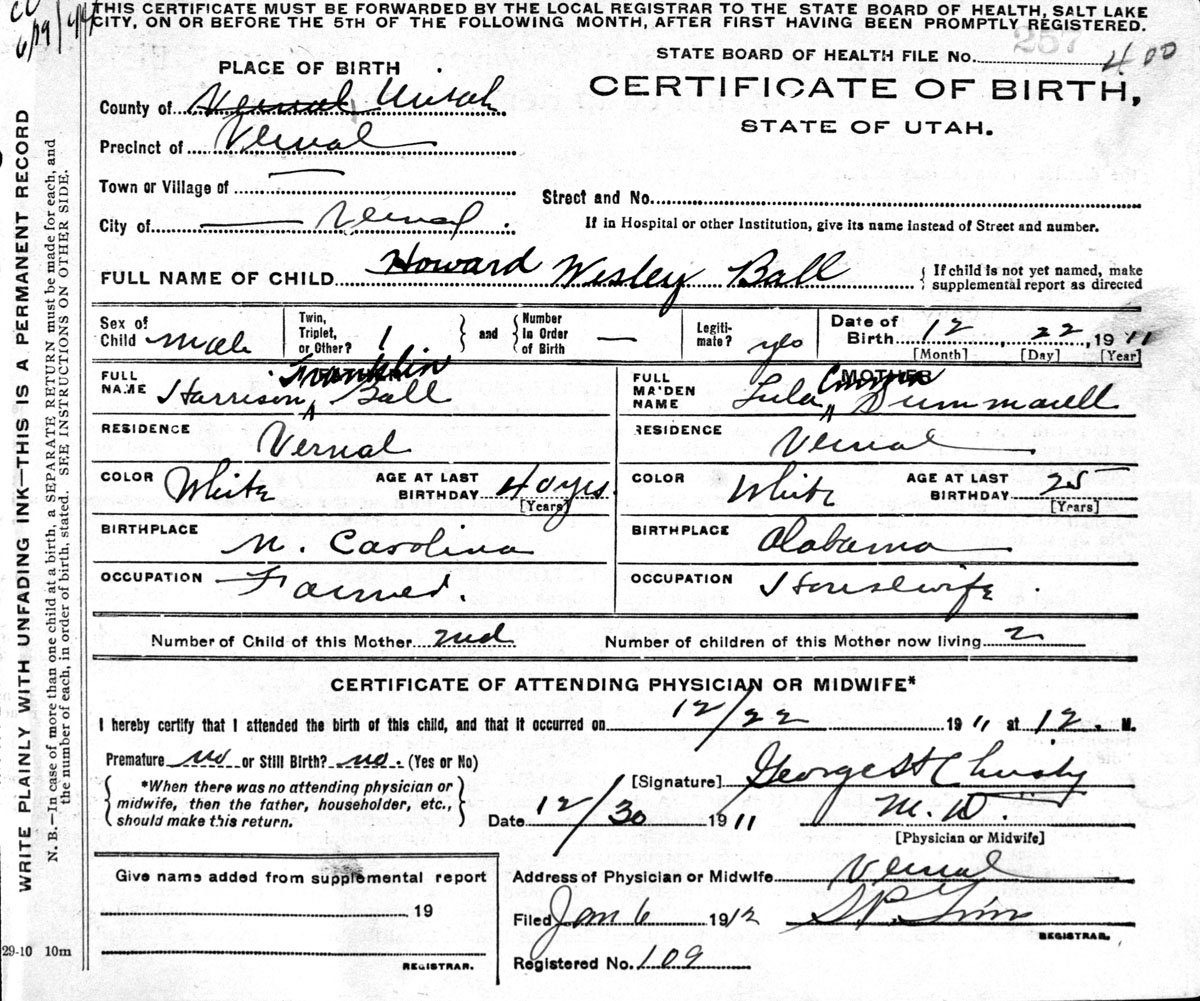 THIS CERTIFICATE MUST BE FORWARDED BY THE LOCAL REGISTRAR TO THE STATE BOARD OF HEALTH, SALT LAKE
CITY, ON OR BEFORE THE 5TH OF THE FOLLOWING MONTH, AFTER FIRST HAVING BEEN PROMPTLY REGISTERED.
257
STATE BOARD OF HEALTH FILE No. 400
PLACE OF BIRTH
CERTIFICATE OF BIRTH,
STATE OF UTAH.
County of Vernal Uintah
Precinct of Vernal
Town or Village of —
Street and No.
City of — Vernal
If in Hospital or other Institution, give its name instead of Street and number.
FULL NAME OF CHILD Howard Wesley Ball
{ If child is not yet named, make
supplemental report as directed
Sex of Child male
Twin, Triplet, or Other? 1 } and { Number In Order of Birth —
Legitimate? yes
Date of Birth 12, 22, 1911
[Month] [Day] [Year]
MOTHER
FULL NAME Harrison Franklin Ball
FULL MAIDEN NAME Lula Summarell
RESIDENCE Vernal
RESIDENCE Vernal
COLOR White AGE AT LAST BIRTHDAY 40 yrs. [Years]
COLOR White AGE AT LAST BIRTHDAY 25 [Years]
BIRTHPLACE N. Carolina
BIRTHPLACE Alabama
OCCUPATION Farmer.
OCCUPATION Housewife.
Number of Child of this Mother 2nd Number of children of this Mother now living 2
CERTIFICATE OF ATTENDING PHYSICIAN OR MIDWIFE*
I hereby certify that I attended the birth of this child, and that it occurred on 12/22 1911 at 12. M.
Premature no or Still Birth? no. (Yes or No)
[Signature] George H Christy
*When there was no attending physician or
midwife, then the father, householder, etc.,
should make this return.
Date 12/30 1911 M.D.
[Physician or Midwife]
Give name added from supplemental report
19
REGISTRAR.
Address of Physician or Midwife Vernal
Filed Jan 6 1912
REGISTRAR.
Registered No. 109
29-10 10m
WRITE PLAINLY WITH UNFADING INK—THIS IS A PERMANENT RECORD
N. B.—In case of more than one child at a birth, a SEPARATE RETURN must be made for each, and
the number of each, in order of birth, stated. SEE INSTRUCTIONS ON OTHER SIDE.